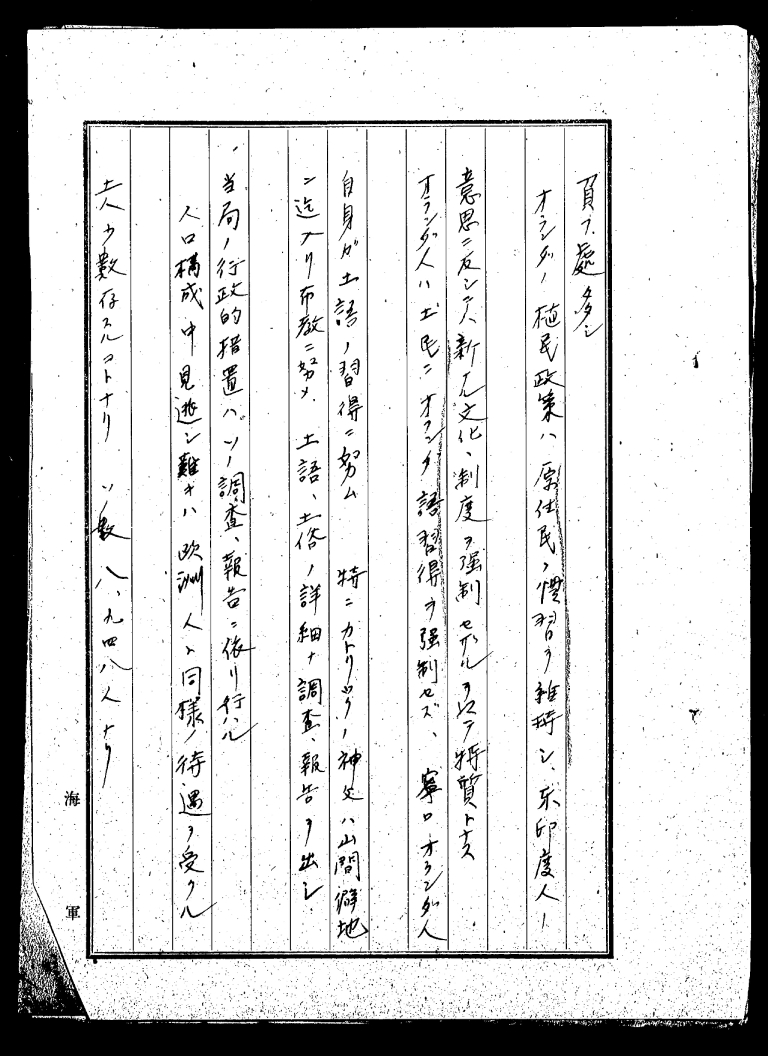 負フ處多シ
オランダノ植民政策ハ原住民ノ慣習ヲ維持シ、东印度人ノ
意思ニ反シテハ新ナル文化、制度ヲ强制セザルヲ以テ特質トナス
オランダ人ハ土民ニオランダ語習得ヲ强制セズ、寧ロオランダ人
自身ガ土語ノ習得ニ努ム 特ニカトリックノ神父ハ山間僻地
ニ迄入リ布教ニ努メ、土語、土俗ノ詳細ナ調査、報告ヲ出シ
当局ノ行政的措置ハソノ調査、報告ニ依リ行ハル
人口構成中見逃シ難キハ欧洲人ト同様ノ待遇ヲ受クル
土人少數存スルコトナリ ソノ数八、九四八人ナリ
海軍